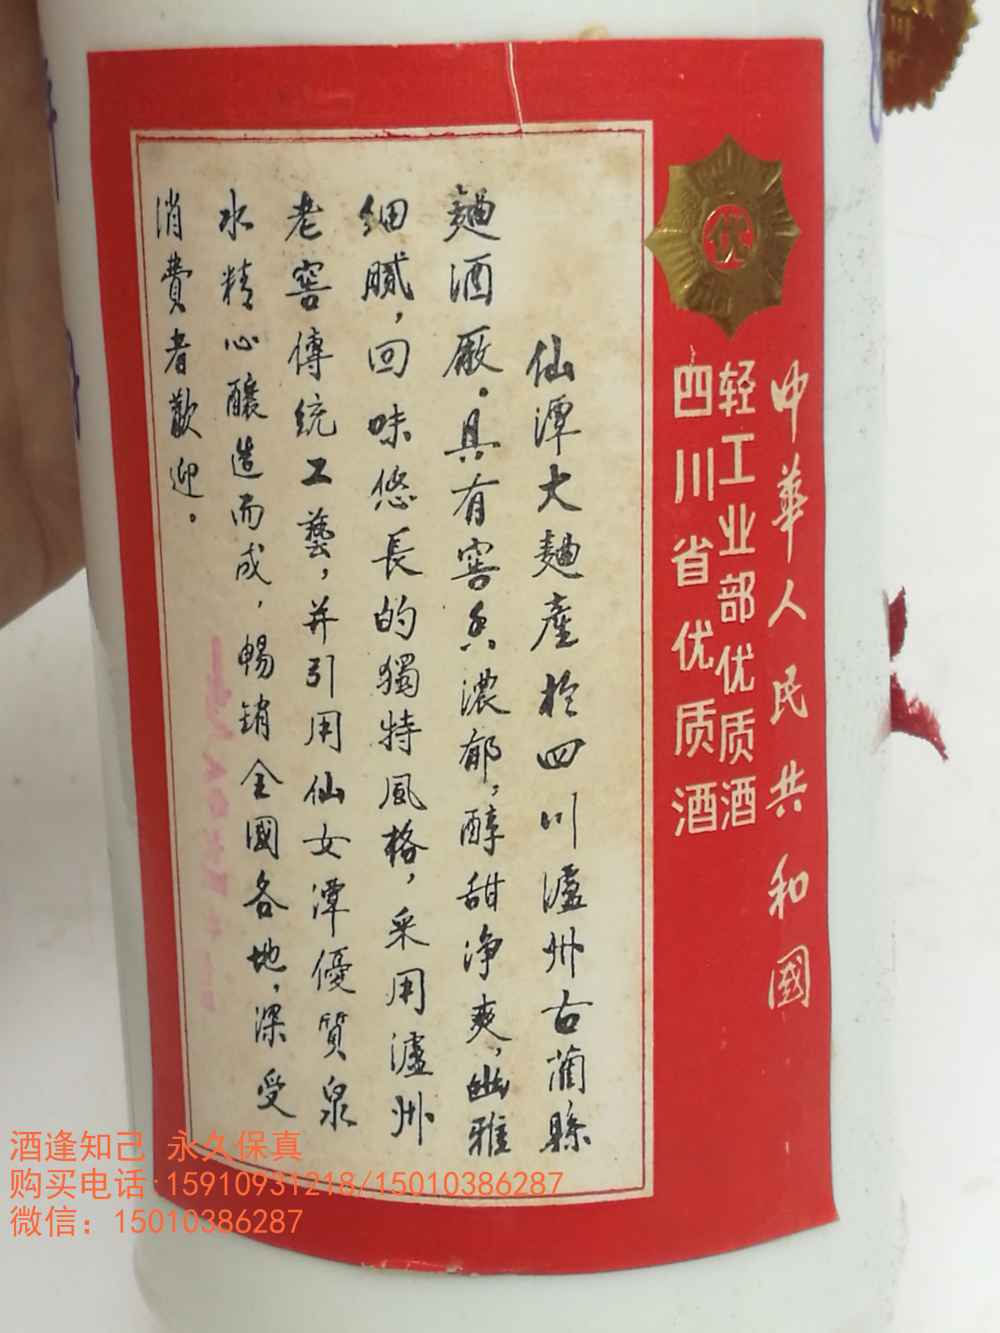 优
中華人民共和國
轻工业部优质酒
四川省优质酒
仙潭大麯產於四川瀘州古藺縣
麯酒厰。具有窖香濃郁，醇甜净爽，幽雅
细腻，回味悠長的獨特風格，采用瀘州
老窖傳统工藝，并引用仙女潭優質泉
水精心釀造而成，暢銷全國各地，深受
消費者歡迎。
酒逢知己 永久保真
购买电话:15910931218/15010386287
微信：15010386287